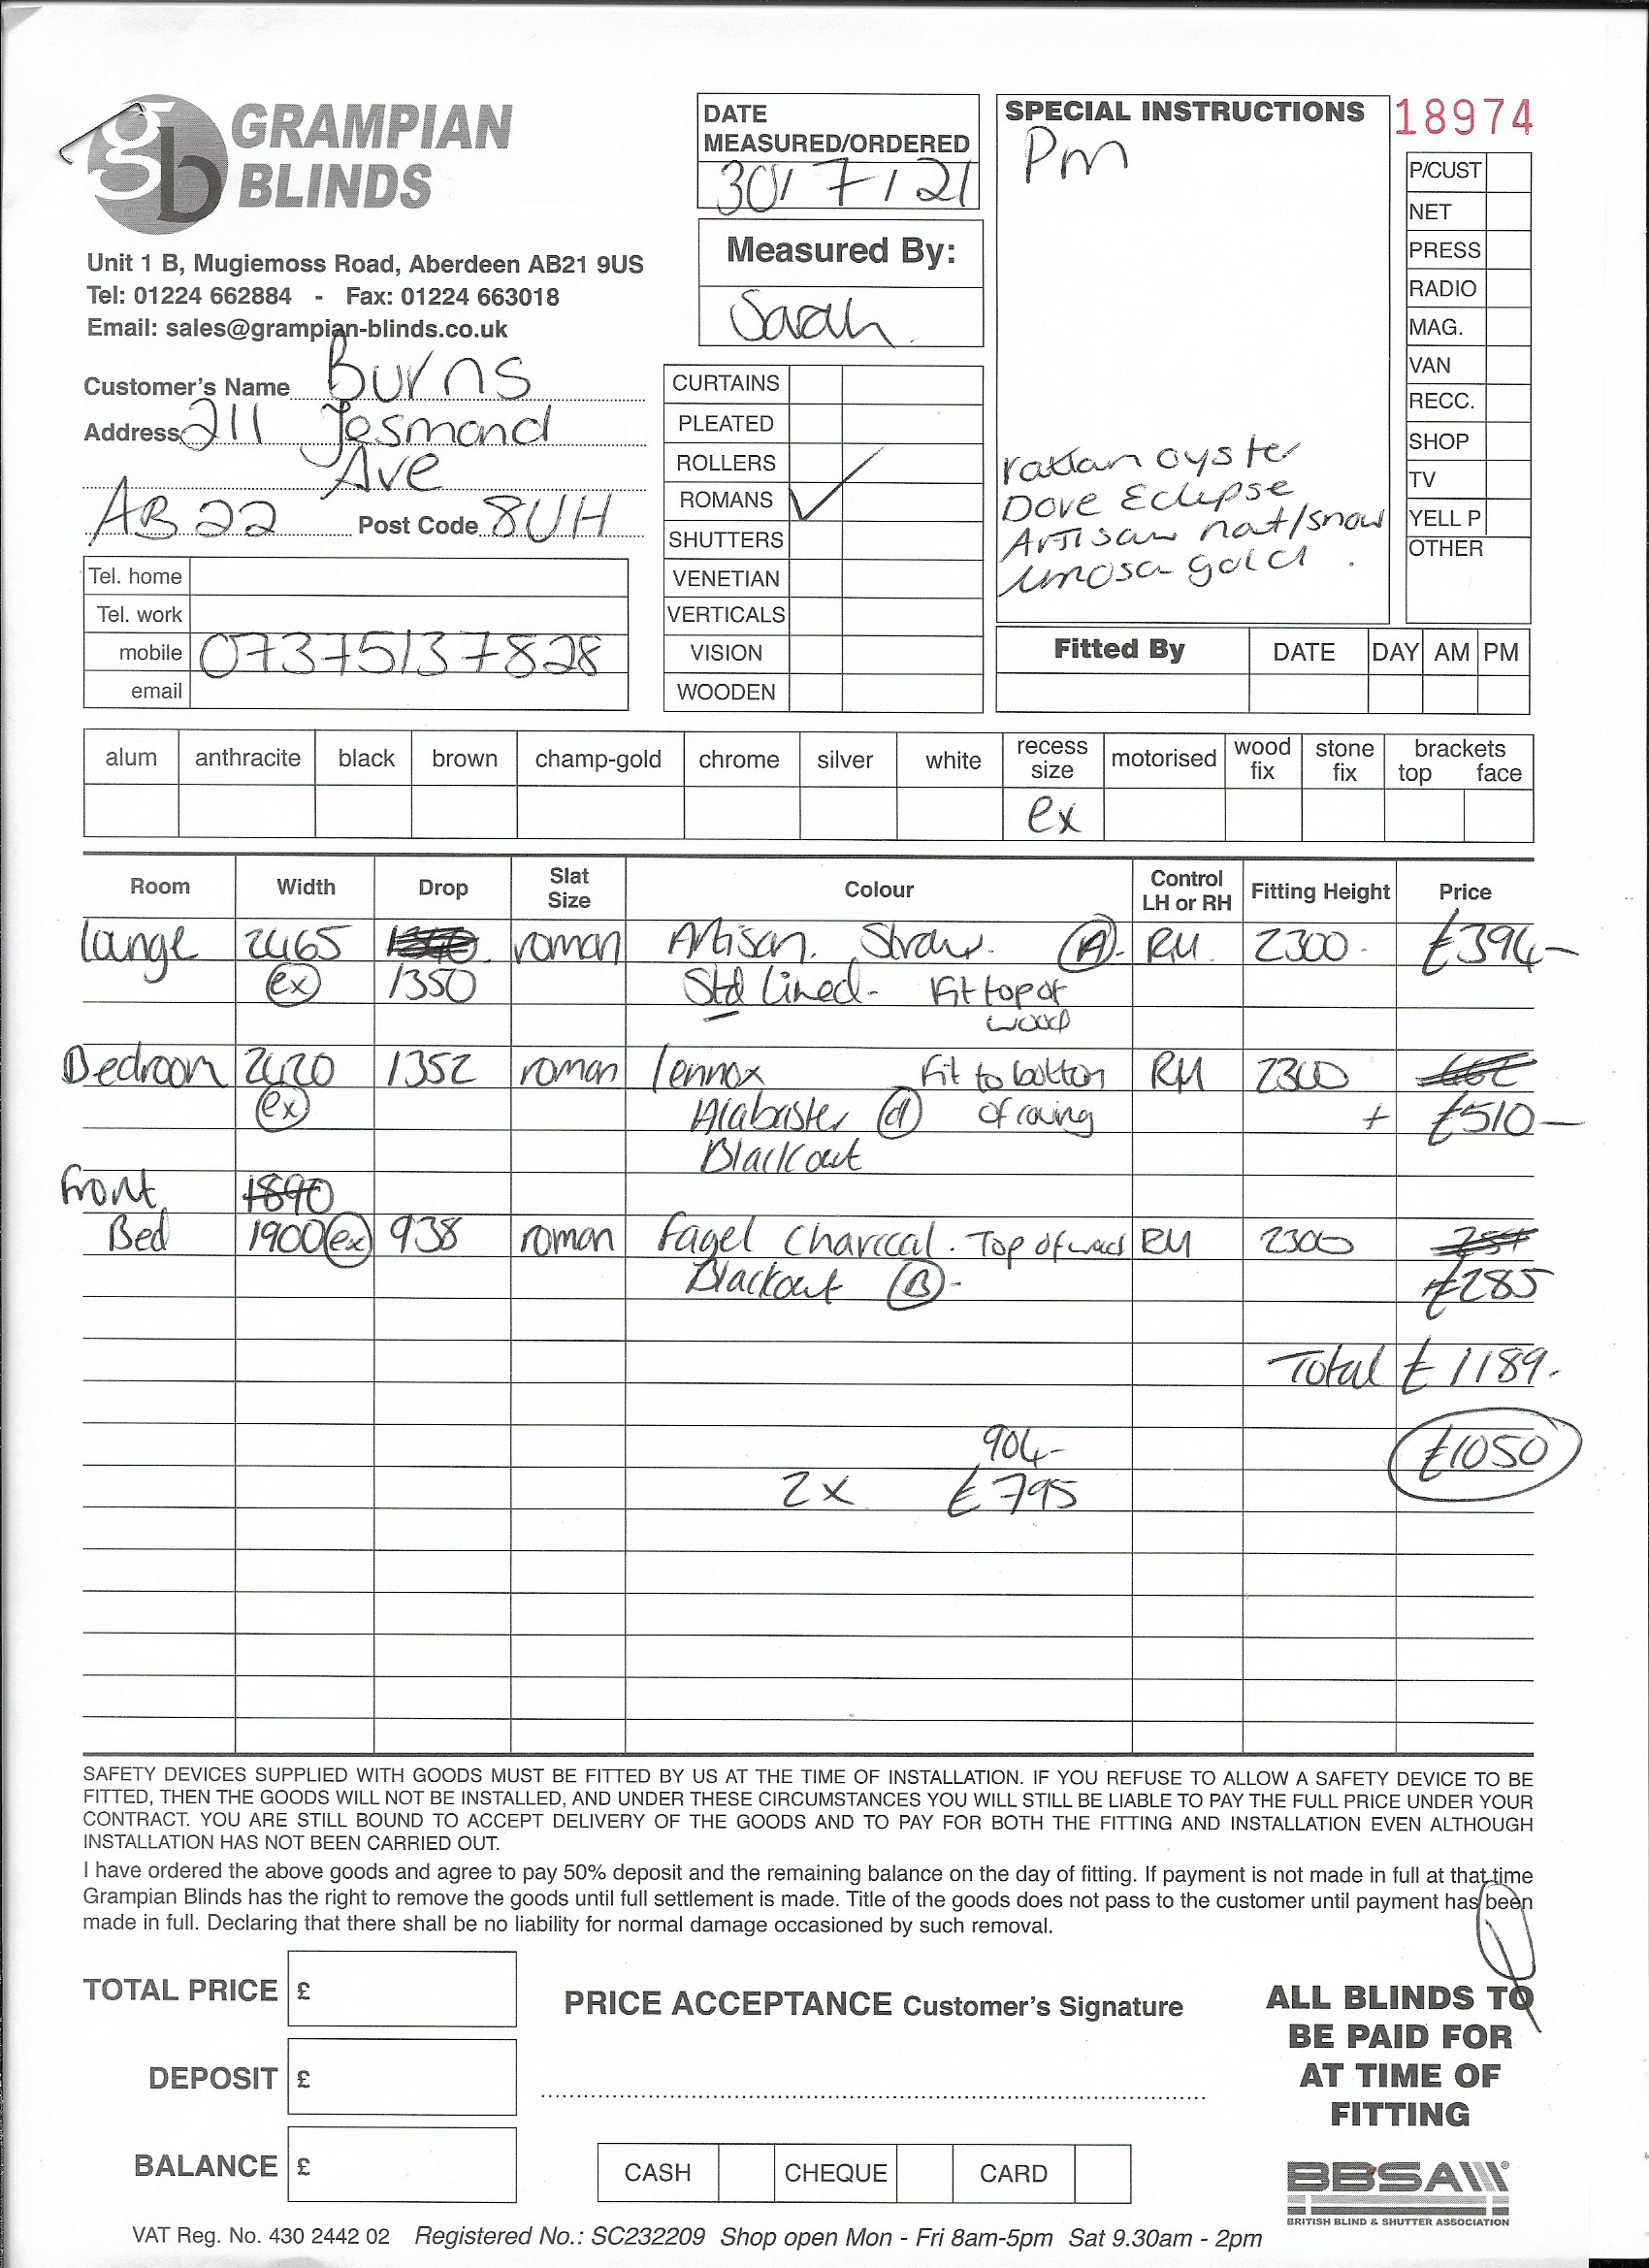 GRAMPIAN
BLINDS
Unit 1 B, Mugiemoss Road, Aberdeen AB21 9US
Tel: 01224 662884 - Fax: 01224 663018
Email: sales@grampian-blinds.co.uk
Customer's Name Burns
Address 211 Jesmond
Ave
AB22 Post Code 8UH
Tel. home
Tel. work
mobile 07375137828
email
DATE
MEASURED/ORDERED
30/7/21
Measured By:
Sarah
CURTAINS
PLEATED
ROLLERS
ROMANS ✓
SHUTTERS
VENETIAN
VERTICALS
VISION
WOODEN
SPECIAL INSTRUCTIONS
Pm
rattan oyster
Dove Eclipse
Artisan nat/snow
gold.
18974
P/CUST
NET
PRESS
RADIO
MAG.
VAN
RECC.
SHOP
TV
YELL P
OTHER
Fitted By DATE DAY AM PM
alum anthracite black brown champ-gold chrome silver white recess size motorised wood fix stone fix brackets top face
ex
Room Width Drop Slat Size Colour Control LH or RH Fitting Height Price
lounge 2465 roman Artisan. Straw. (A). RH. 2300- £394-
(ex) 1350 Std lined- Fit top of
wood
Bedroom 2420 1352 roman lennox Fit to bottom RH 2300
(ex) Alabaster (d) of coving + £510-
Blackout
front 1890
Bed 1900 (ex) 938 roman Fagel Charcoal. Top of wood RH 2300
Blackout (B)- £285
Total £1189.
904- £1050
2x £795
SAFETY DEVICES SUPPLIED WITH GOODS MUST BE FITTED BY US AT THE TIME OF INSTALLATION. IF YOU REFUSE TO ALLOW A SAFETY DEVICE TO BE
FITTED, THEN THE GOODS WILL NOT BE INSTALLED, AND UNDER THESE CIRCUMSTANCES YOU WILL STILL BE LIABLE TO PAY THE FULL PRICE UNDER YOUR
CONTRACT. YOU ARE STILL BOUND TO ACCEPT DELIVERY OF THE GOODS AND TO PAY FOR BOTH THE FITTING AND INSTALLATION EVEN ALTHOUGH
INSTALLATION HAS NOT BEEN CARRIED OUT.
I have ordered the above goods and agree to pay 50% deposit and the remaining balance on the day of fitting. If payment is not made in full at that time
Grampian Blinds has the right to remove the goods until full settlement is made. Title of the goods does not pass to the customer until payment has been
made in full. Declaring that there shall be no liability for normal damage occasioned by such removal.
TOTAL PRICE £
DEPOSIT £
BALANCE £
PRICE ACCEPTANCE Customer's Signature
CASH CHEQUE CARD
ALL BLINDS TO
BE PAID FOR
AT TIME OF
FITTING
BBSA
BRITISH BLIND & SHUTTER ASSOCIATION
VAT Reg. No. 430 2442 02 Registered No.: SC232209 Shop open Mon - Fri 8am-5pm Sat 9.30am - 2pm